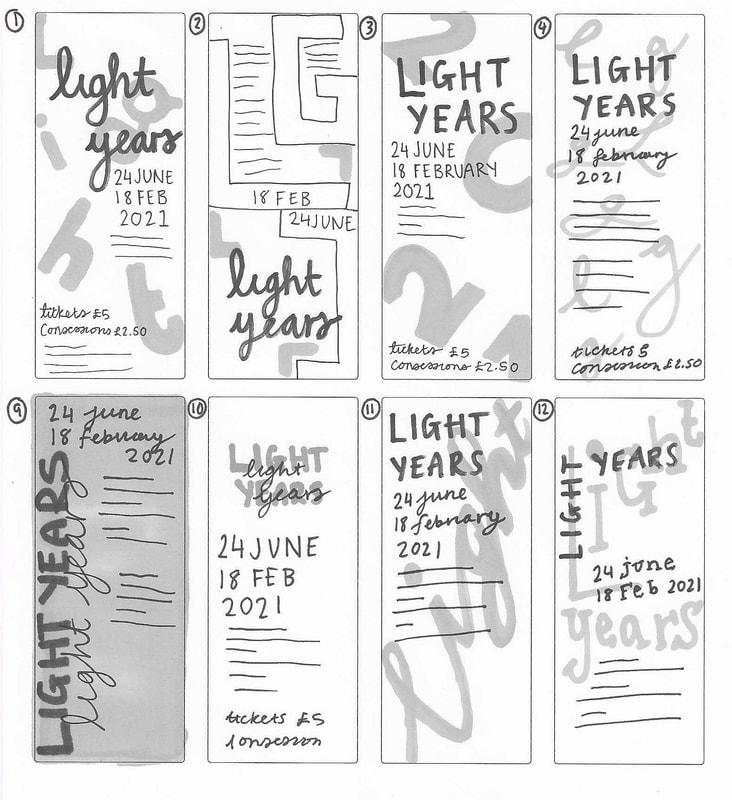 1
light
years
24 JUNE
18 FEB
2021
tickets £5
Consessions £2.50
L
i
g
h
t
2
LG
18 FEB
24 JUNE
light
years
3
LIGHT
YEARS
24 JUNE
18 FEBRUARY
2021
tickets £5
Consessions £2.50
2
0
2
1
4
LIGHT
YEARS
24 june
18 february
2021
tickets 5
Consession £2.50
9
24 june
18 february
2021
LIGHT YEARS
light years
10
LIGHT
YEARS
light
years
24 JUNE
18 FEB
2021
tickets £5
11
LIGHT
YEARS
24 june
18 february
2021
light
12
LIGHT
YEARS
24 june
18 Feb 2021
Light
years